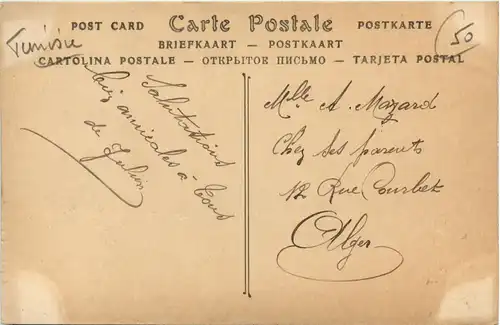 POST CARD Carte Postale POSTKARTE
BRIEFKAART — POSTKAART
CARTOLINA POSTALE — ОТКРЫТОК ПИСЬМО — TARJETA POSTAL
Tunisie
50
Salutations
bien amicales à tous
de Julien
Mlle A. Mazard
Chez ses parents
12 Rue Courbet
Alger